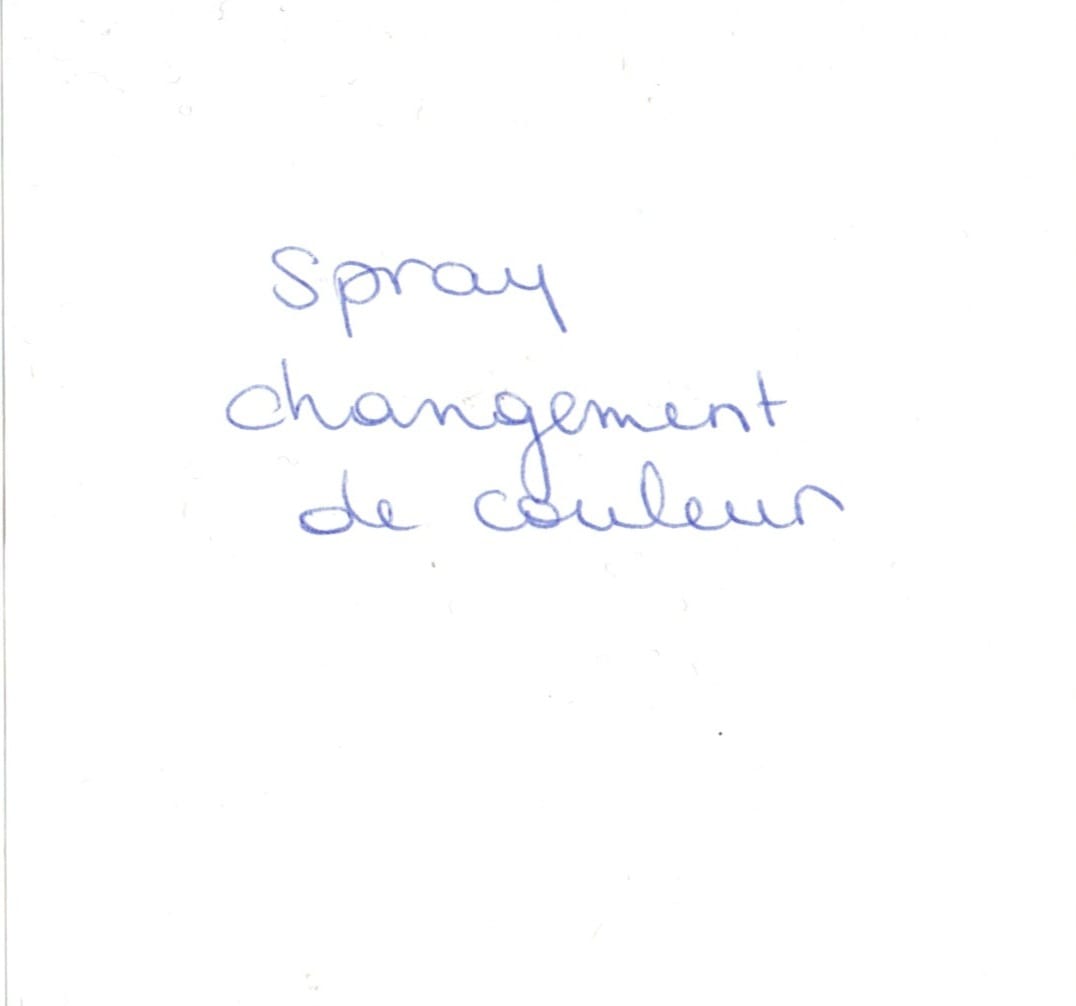 Spray
changement
de couleur